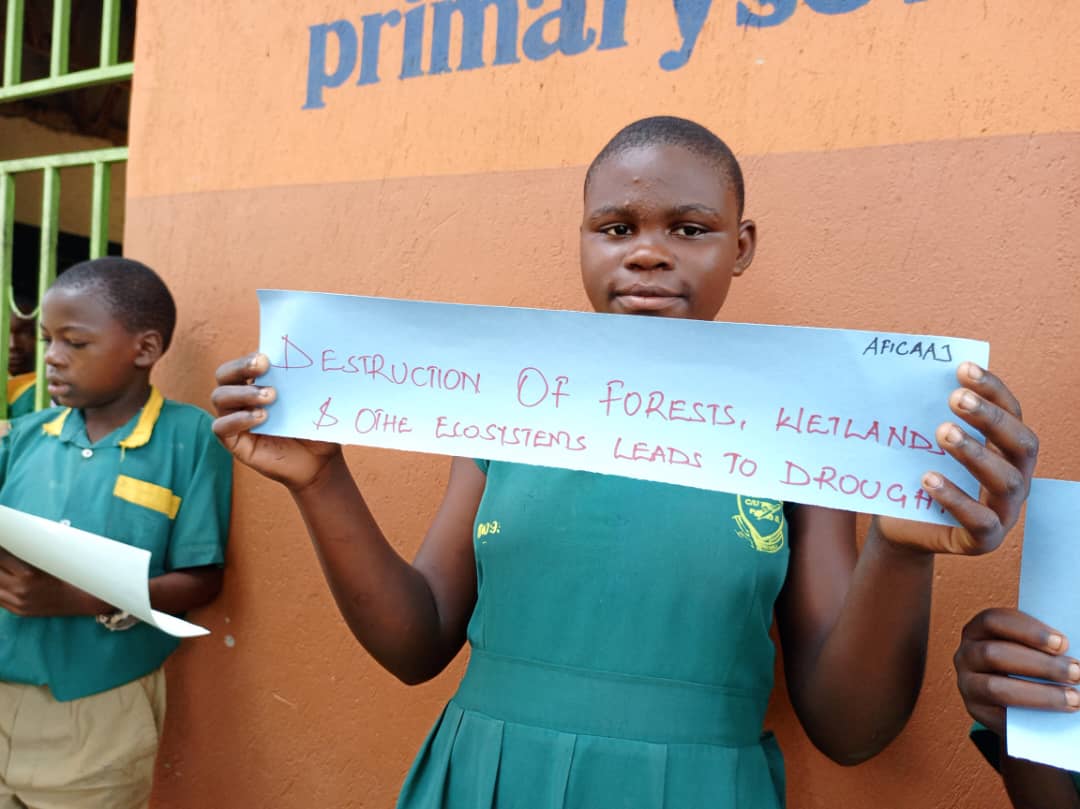 primarysc
AFICAAJ
DESTRUCTION OF FORESTS, WETLANDS
& OTHE ECOSYSTEMS LEADS TO DROUGHT